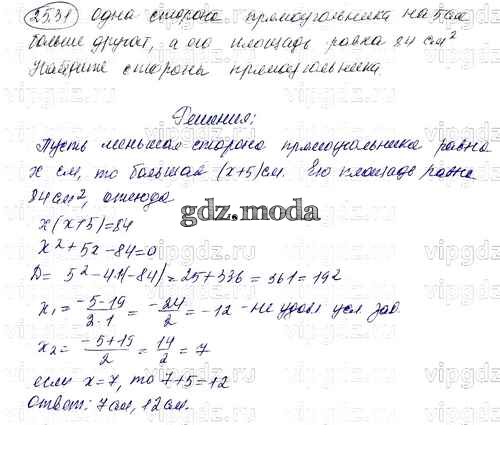 25.31 Одна сторона прямоугольника на 5см
больше другой, а его площадь равна 84 см²
Найдите стороны прямоугольника.
Решения:
Пусть меньшая сторона прямоугольника равна
x см, то большая (x+5)см. Его площадь равна
84см², откуда
gdz.moda
x(x+5)=84
x²+5x-84=0
D= 5²-4·1(-84)=25+336=361=19²
x₁= -5-19/2·1 = -24/2 = -12 - не удовл усл. зад.
x₂= -5+19/2 = 14/2 = 7
если x=7, то 7+5=12
Ответ: 7см, 12см.
vipgdz.ru